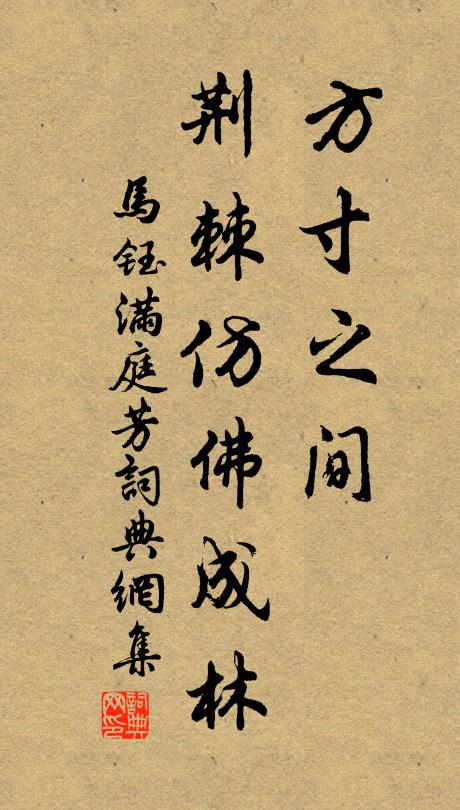 方寸之间
荆棘仿佛成林
馬鈺滿庭芳詞典網集
詞典网印